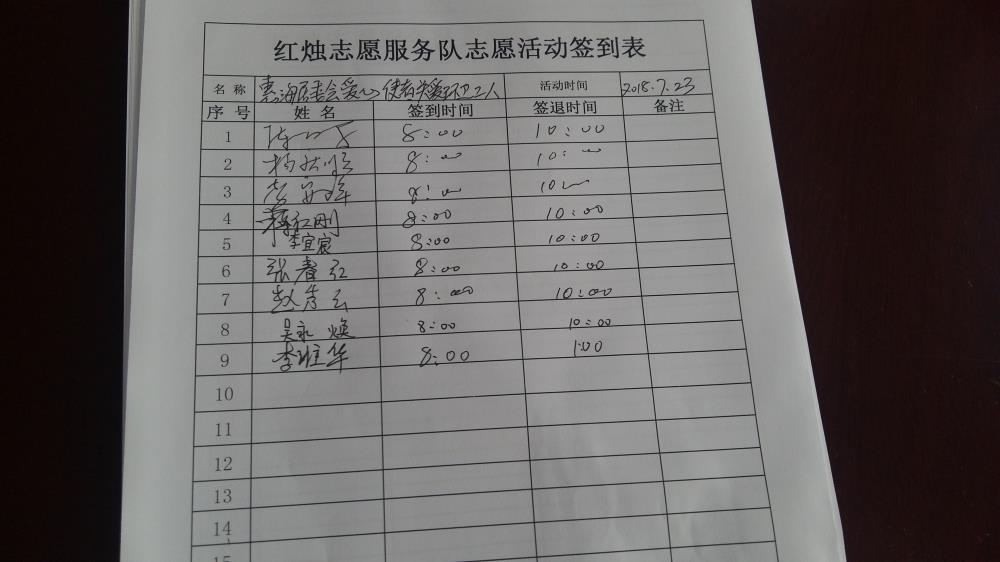 红烛志愿服务队志愿活动签到表
名 称 惠海居委会爱心使者关爱环卫工人 活动时间 2018.7.23
序 号 姓 名 签到时间 签退时间 备注
1 8:00 10:00
2 8:00 10:00
3 8:00 10
4 红刚 8:00 10:00
5 李宜宸 8:00 10:00
6 张春红 8:00 10:00
7 赵秀云 8:00 10:00
8 吴永焕 8:00 10:00
9 李维华 8:00 1:00
10
11
12
13
14
15